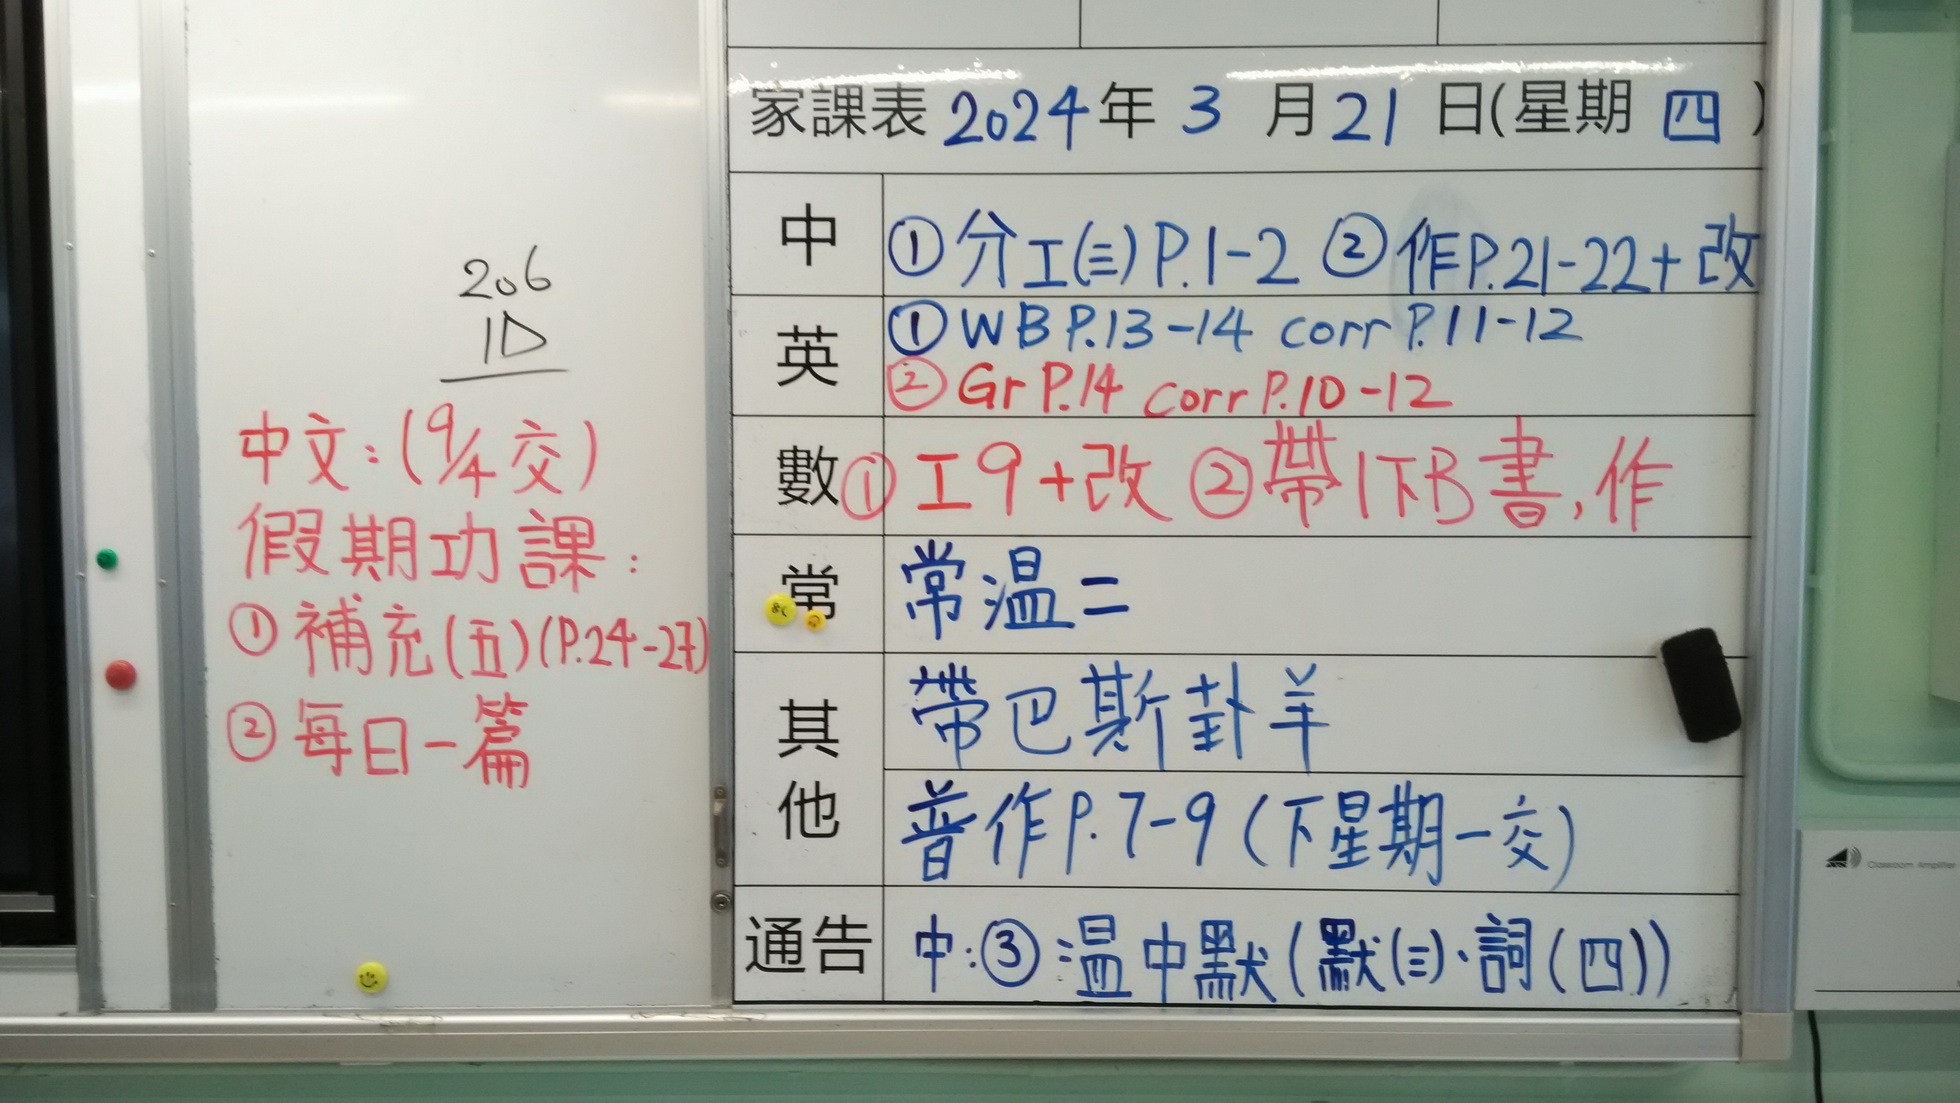 206
1D
中文：(9/4 交)
假期功課：
① 補充(五)(P.24-27)
② 每日一篇
家課表 2024年 3 月 21 日(星期 四 )
中 ① 分工(三) P.1-2 ② 作P.21-22+改
英 ① WB P.13-14 corr P.11-12
② Gr P.14 corr P.10-12
數 ① 工9+改 ② 帶1下B書,作
常 常溫二
其他 帶巴斯卦羊
普作P.7-9 (下星期一交)
通告 中:③溫中默(默(三)、詞(四))
Classroom Amplifier